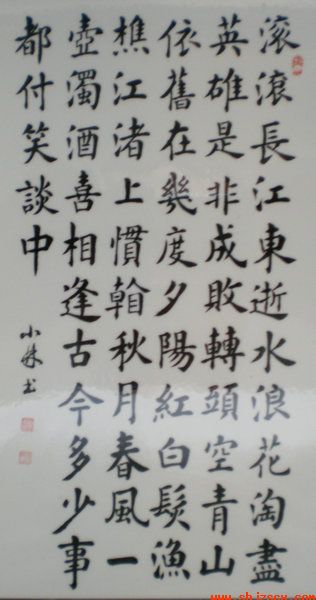 滚滾長江東逝水浪花淘盡
英雄是非成敗轉頭空青山
依舊在幾度夕陽紅白髮漁
樵江渚上慣翰秋月春風一
壺濁酒喜相逢古今多少事
都付笑談中